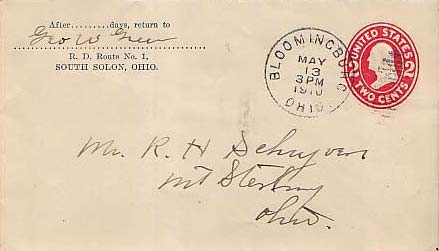 After.........days, return to
Geo W Greer
R. D. Route No. 1,
SOUTH SOLON, OHIO.
BLOOMINGBURG
MAY
13
3PM
1910
OHIO
UNITED STATES
2 2
TWO CENTS
Mr. R. H Schryver
Mt Sterling
Ohio.